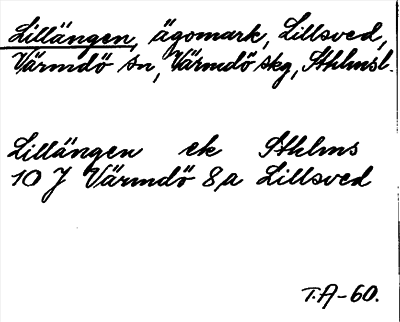 Lillängen, ägomark, Lillsved,
Värmdö sn, Värmdö skg, Sthlmsl.
Lillängen ek Sthlms
10 J Värmdö 8a Lillsved
T.A-60.